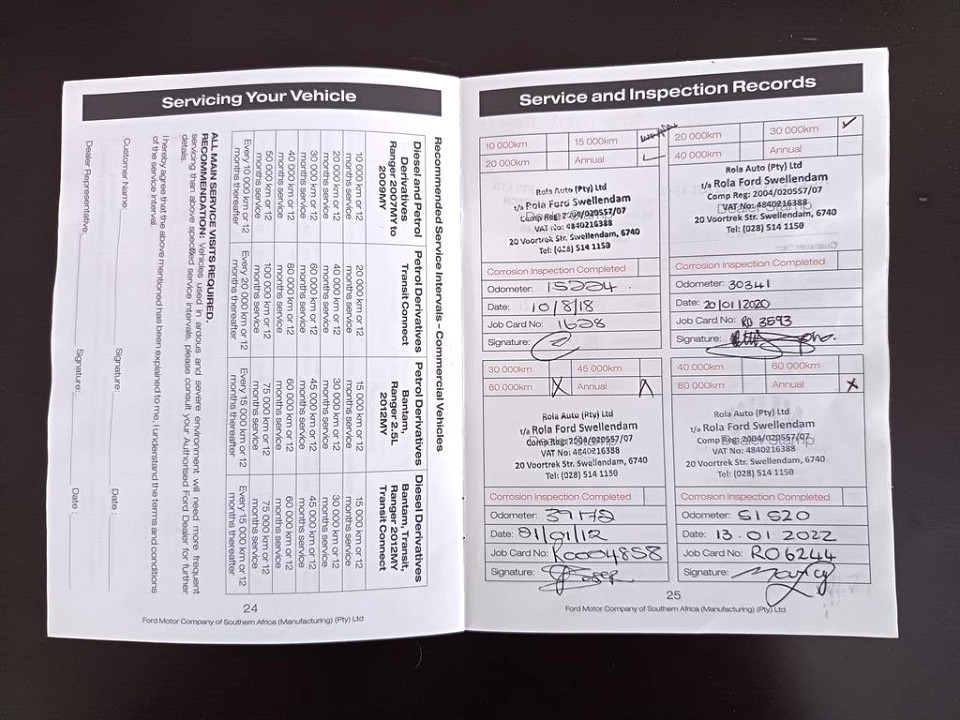 Servicing Your Vehicle
Recommended Service Intervals – Commercial Vehicles
Diesel and Petrol
Derivatives
Ranger 2007MY to
2009MY
10 000 km or 12
months service
20 000 km or 12
months service
30 000 km or 12
months service
40 000 km or 12
months service
50 000 km or 12
months service
Every 10 000 km or 12
months thereafter
Petrol Derivatives
Transit Connect
20 000 km or 12
months service
40 000 km or 12
months service
60 000 km or 12
months service
80 000 km or 12
months service
100 000 km or 12
months service
Every 20 000 km or 12
months thereafter
Petrol Derivatives
Bantam,
Ranger 2.5L
2012MY
15 000 km or 12
months service
30 000 km or 12
months service
45 000 km or 12
months service
60 000 km or 12
months service
75 000 km or 12
months service
Every 15 000 km or 12
months thereafter
Diesel Derivatives
Bantam, Transit,
Ranger 2012MY
Transit Connect
15 000 km or 12
months service
30 000 km or 12
months service
45 000 km or 12
months service
60 000 km or 12
months service
75 000 km or 12
months service
Every 15 000 km or 12
months thereafter
ALL MAIN SERVICE VISITS REQUIRED.
RECOMMENDATION: Vehicles used in ardous and severe environment will need more frequent
servicing than above specified service intervals, please consult your Authorised Ford Dealer for further
details.
I hereby agree that the above mentioned has been explained to me, I understand the terms and conditions
of the service interval.
Customer Name: Signature: Date :
Dealer Representative: Signature: Date :
24
Ford Motor Company of Southern Africa (Manufacturing) (Pty) Ltd
Service and Inspection Records
10 000km 15 000km
20 000km Annual
Rola Auto (Pty) Ltd
t/a Rola Ford Swellendam
Comp Reg: 2004/020557/07
VAT No: 4840216388
20 Voortrek Str. Swellendam, 6740
Tel: (028) 514 1150
Corrosion Inspection Completed
Odometer: 15224
Date: 10/8/18
Job Card No: 1628
Signature:
20 000km 30 000km
40 000km Annual
Rola Auto (Pty) Ltd
t/a Rola Ford Swellendam
Comp Reg: 2004/020557/07
VAT No: 4840216388
Dealer Stamp
20 Voortrek Str. Swellendam, 6740
Tel: (028) 514 1150
Corrosion Inspection Completed
Odometer: 30341
Date: 20/01/2020
Job Card No: RO 3593
Signature:
30 000km 45 000km
60 000km X Annual
Rola Auto (Pty) Ltd
t/a Rola Ford Swellendam
Comp Reg: 2004/020557/07
VAT No: 4840216388
20 Voortrek Str. Swellendam, 6740
Tel: (028) 514 1150
Corrosion Inspection Completed
Odometer: 39172
Date: 21/01/12
Job Card No: K0004858
Signature:
40 000km 60 000km
80 000km Annual X
Rola Auto (Pty) Ltd
t/a Rola Ford Swellendam
Comp Reg: 2004/020557/07
Dealer Stamp
VAT No: 4840216388
20 Voortrek Str. Swellendam, 6740
Tel: (028) 514 1150
Corrosion Inspection Completed
Odometer: 51520
Date: 13.01 2022
Job Card No: RO6244
Signature:
25
Ford Motor Company of Southern Africa (Manufacturing) (Pty) Ltd